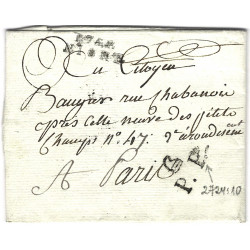 Au Citoyen
Bauyar rue chabanoir
près celle neuve des petits
Champs n°. 47. 2e aroudissent
A Paris
P.P.
272410